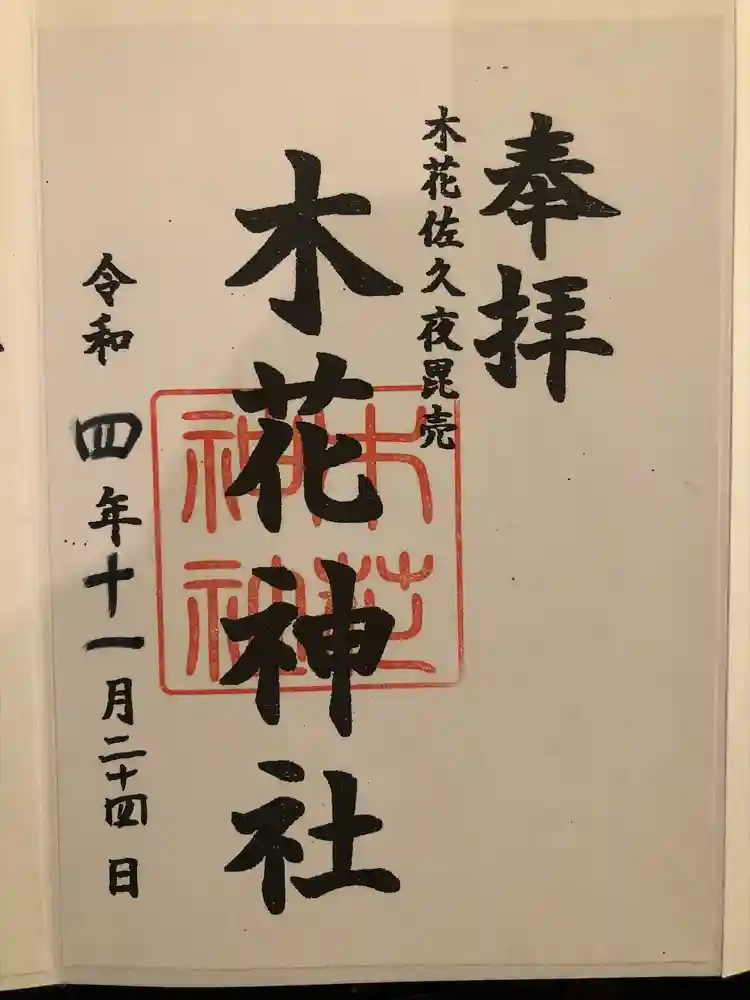 奉拝
木花佐久夜毘売
木花神社
令和四年十一月二十四日